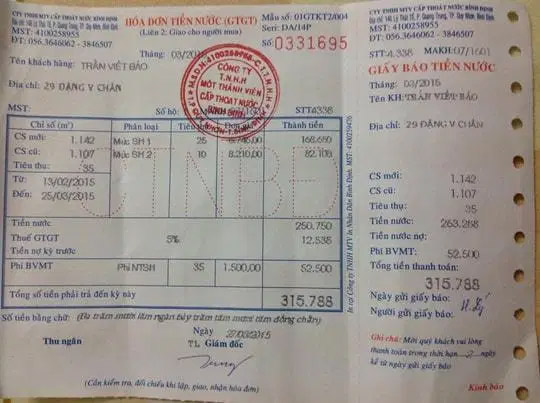 CTY TNHH MTV CẤP THOÁT NƯỚC BÌNH ĐỊNH
MST: 4100258955
ĐT: 056.3646062 - 3846507
HÓA ĐƠN TIỀN NƯỚC (GTGT)
(Liên 2: Giao cho người mua)
Mẫu số: 01GTKT2/004
Seri: DA/14P
Số 0331695
Tháng: 03/2015
Tên khách hàng: TRẦN VIẾT BẢO
Địa chỉ: 29 ĐẶNG V CHẤN
M.S.D.N: 4100258955-C.T.T.N.H.H
CÔNG TY
T.N.H.H
MỘT THÀNH VIÊN
CẤP THOÁT NƯỚC
BÌNH ĐỊNH
MST:
Số hộ:
STT:4338
Chỉ số (m³) Phân loại Tiêu thụ Đơn giá Thành tiền
CS mới: 1.142 Mức SH 1 25 6.746,00 168.650
CS cũ: 1.107 Mức SH 2 10 8.210,00 82.100
Tiêu thụ: 35
Từ: 13/02/2015
Đến: 25/03/2015
BINBE
Tiền nước 250.750
Thuế GTGT 5% 12.538
Tiền nợ kỳ trước
Phí BVMT Phí NTSH 35 1.500,00 52.500
Tổng số tiền phải trả đến kỳ này 315.788
Số tiền bằng chữ: (Ba trăm mười lăm ngàn bảy trăm tám mươi tám đồng chẵn)
Ngày 27/03/2015
Thu ngân T1. Giám đốc
(Cần kiểm tra, đối chiếu khi lập, giao, nhận hóa đơn)
In tại Công ty TNHH MTV In Nhân Dân Bình Định, MST: 4100259436
CTY TNHH MTV CẤP THOÁT NƯỚC BÌNH ĐỊNH
MST: 4100258955
ĐT: 056.3646062 - 3846507
STT:4.338 MAKH: 07/1601
GIẤY BÁO TIỀN NƯỚC
Tháng: 03/2015
Tên KH: TRẦN VIẾT BẢO
Địa chỉ: 29 ĐẶNG V CHẤN
CS mới: 1.142
CS cũ: 1.107
Tiêu thụ: 35
Tiền nước: 263.288
Tiền nước nợ:
Phí BVMT: 52.500
Tổng tiền thanh toán:
315.788
Ngày gửi giấy báo:
Người gửi giấy báo:
Ghi chú: Mời quý khách vui lòng
thanh toán trong thời hạn 2 ngày
kể từ ngày gửi giấy báo
Kính báo